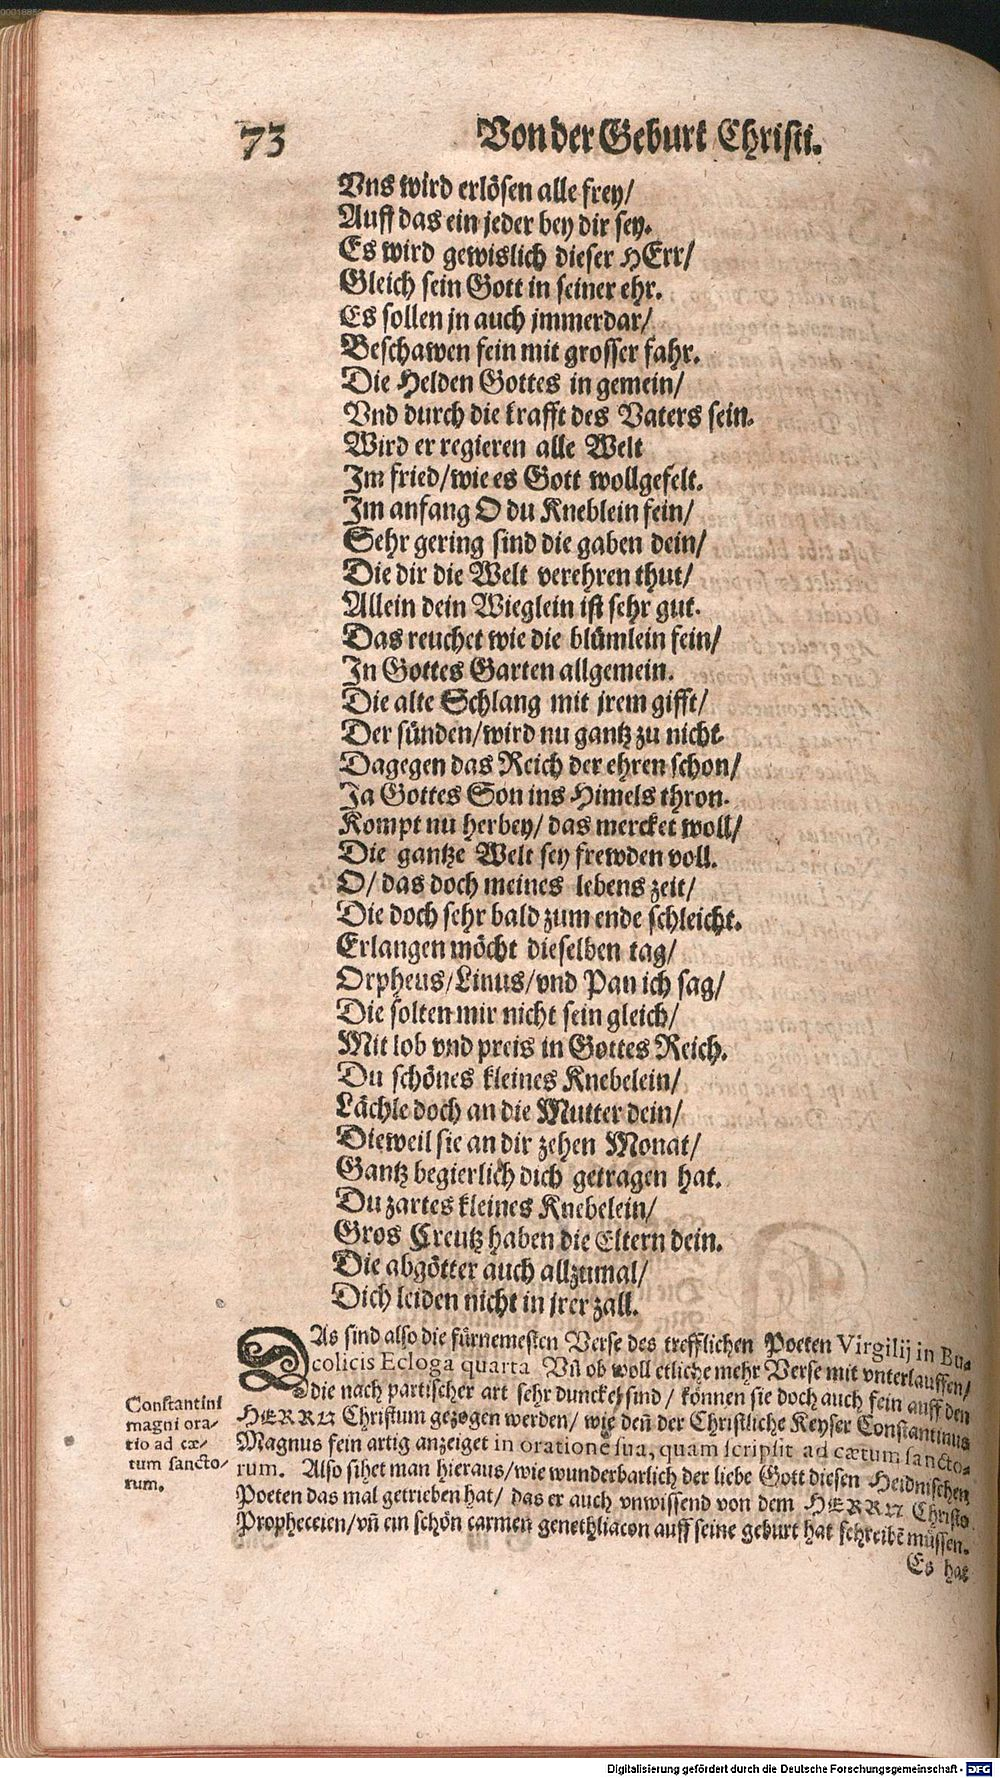 00018859
73 Von der Geburt Christi.
Vns wird erlösen alle frey/
Auff das ein jeder bey dir sey.
Es wird gewislich dieser HErr/
Gleich sein Gott in seiner ehr.
Es sollen jn auch jmmerdar/
Beschawen fein mit grosser fahr.
Die Helden Gottes in gemein/
Vnd durch die krafft des Vaters sein.
Wird er regieren alle Welt
Im fried/wie es Gott wollgefelt.
Im anfang O du Kneblein fein/
Sehr gering sind die gaben dein/
Die dir die Welt verehren thut/
Allein dein Wieglein ist sehr gut.
Das reuchet wie die blümlein fein/
In Gottes Garten allgemein.
Die alte Schlang mit jrem gifft/
Der sünden/wird nu gantz zu nicht.
Dagegen das Reich der ehren schon/
Ja Gottes Son ins Himels thron.
Kompt nu herbey/ das mercket woll/
Die gantze Welt sey frewden voll.
O/ das doch meines lebens zeit/
Die doch sehr bald zum ende schleicht.
Erlangen möcht dieselben tag/
Orpheus/Linus/vnd Pan ich sag/
Die solten mir nicht sein gleich/
Mit lob vnd preis in Gottes Reich.
Du schönes kleines Knebelein/
Lächle doch an die Mutter dein/
Dieweil sie an dir zehen Monat/
Gantz begierlich dich getragen hat.
Du zartes kleines Knebelein/
Gros Creutz haben die Eltern dein.
Die abgötter auch allzumal/
Dich leiden nicht in jrer zall.
DAs sind also die fürnemesten Verse des trefflichen Poeten Virgilij in Bu-
colicis Ecloga quarta Vñ ob woll etliche mehr Verse mit vnterlauffen/
die nach partischer art sehr dunckel sind/ können sie doch auch fein auff den
HERRN Christum gezogen werden/ wie deñ der Christliche Keyser Constantinus
Magnus fein artig anzeiget in oratione sua, quam scripsit ad cætum sancto-
rum. Also sihet man hieraus/wie wunderbarlich der liebe Gott diesen Heidnischen
Poeten das mal getrieben hat/ das er auch vnwissend von dem HERRN Christo
Propheceien/vñ ein schön carmen genethliacon auff seine geburt hat schreibẽ müssen.
Es hat
Constantini
magni ora-
tio ad cæ-
tum sancto-
rum.
Digitalisierung gefördert durch die Deutsche Forschungsgemeinschaft - DFG